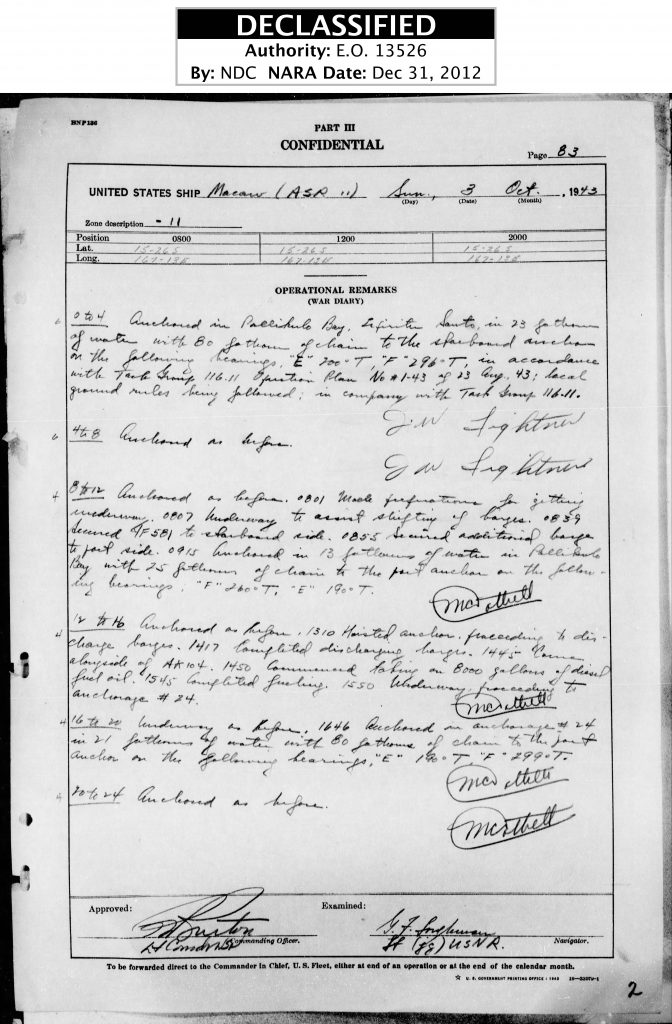 DECLASSIFIED
Authority: E.O. 13526
By: NDC NARA Date: Dec 31, 2012
BNP136
PART III
CONFIDENTIAL
Page 83
UNITED STATES SHIP Macaw (ASR 11) Sun., 3 Oct., 1943
(Day) (Date) (Month)
Zone description - 11
Position 0800 1200 2000
Lat. 15-26S 15-26S 15-26S
Long. 167-13E 167-13E 167-13E
OPERATIONAL REMARKS
(WAR DIARY)
0 to 4 Anchored in Pallikulo Bay, Espiritu Santo, in 23 fathoms
of water with 80 fathoms of chain to the starboard anchor
on the following bearings, "E" 200°T, "F" 296°T, in accordance
with Task Group 116.11 Operation Plan No A1-43 of 23 Aug. 43; local
ground rules being followed; in company with Task Group 116.11.
J W Lightner
4 to 8 Anchored as before.
J W Lightner
8 to 12 Anchored as before. 0801 Made preparations for getting
underway. 0807 Underway to assist shifting of barges. 0839
secured YF581 to starboard side. 0855 secured additional barge
to port side. 0915 Anchored in 13 fathoms of water in Pallikulo
Bay with 25 fathoms of chain to the port anchor on the follow-
ing bearings, "F" 260°T. "E" 190°T.
12 to 16 Anchored as before. 1310 Hoisted anchor, proceeding to dis-
charge barges. 1417 Completed discharging barges. 1445 Came
alongside of AK104. 1450 Commenced taking on 8000 gallons of diesel
fuel oil. 1545 Completed fueling. 1550 Underway, proceeding to
anchorage # 24.
16 to 20 Underway as before, 1646 Anchored in anchorage # 24
in 21 fathoms of water with 80 fathoms of chain to the port
anchor on the following bearings, "E" 190°T "F" 299°T.
20 to 24 Anchored as before.
Approved: Examined:
Burton
Lt Comdr Commanding Officer. Lt (jg) USNR. Navigator.
To be forwarded direct to the Commander in Chief, U. S. Fleet, either at end of an operation or at the end of the calendar month.
☆ U. S. GOVERNMENT PRINTING OFFICE : 1943
2